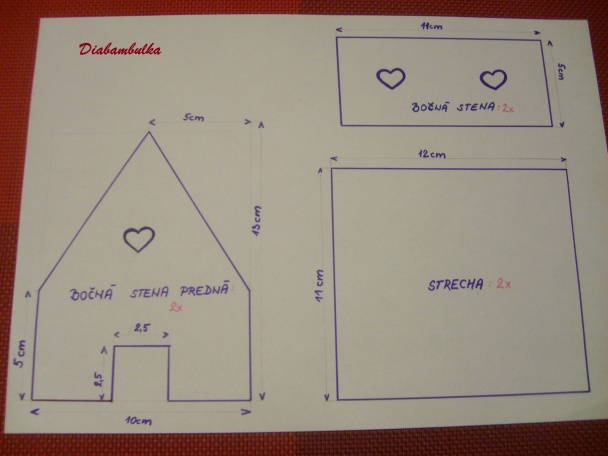 Diabambulka
5cm
13cm
BOČNÁ STENA PREDNÁ:
2x
5cm
2,5
2,5
10cm
11cm
5cm
BOČNÁ STENA: 2x
12cm
11cm
STRECHA: 2x